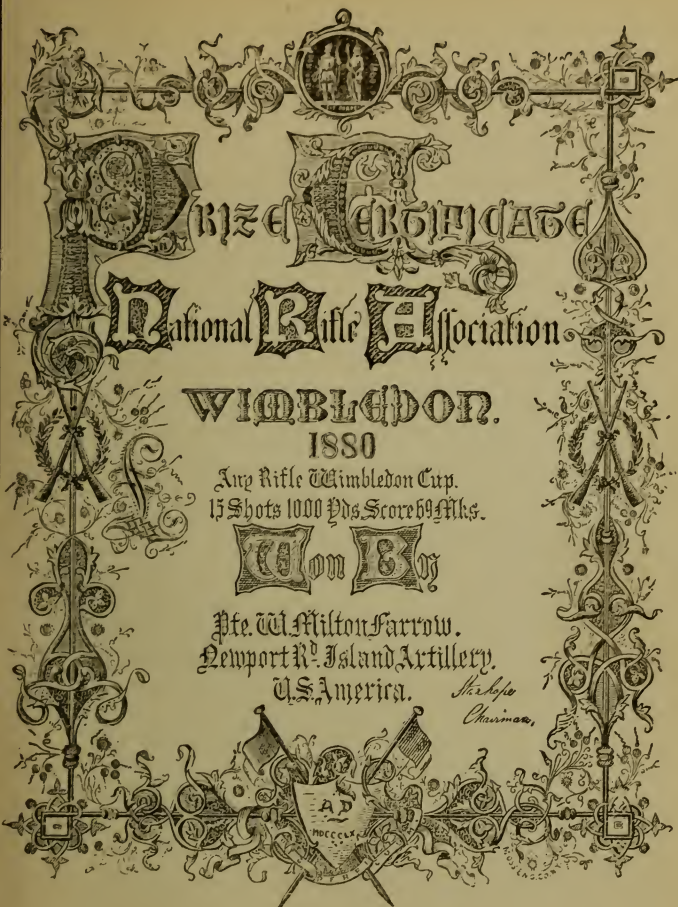 Prize Certificate
National Rifle Association
WIMBLEDON.
1880
Any Rifle Wimbledon Cup.
15 Shots 1000 Yds. Score 69 Mks.
Won By
Pte. W. Milton Farrow.
Newport Rd. Island Artillery.
U.S. America.
Stanhope
Chairman,
AD
MDCCCLX